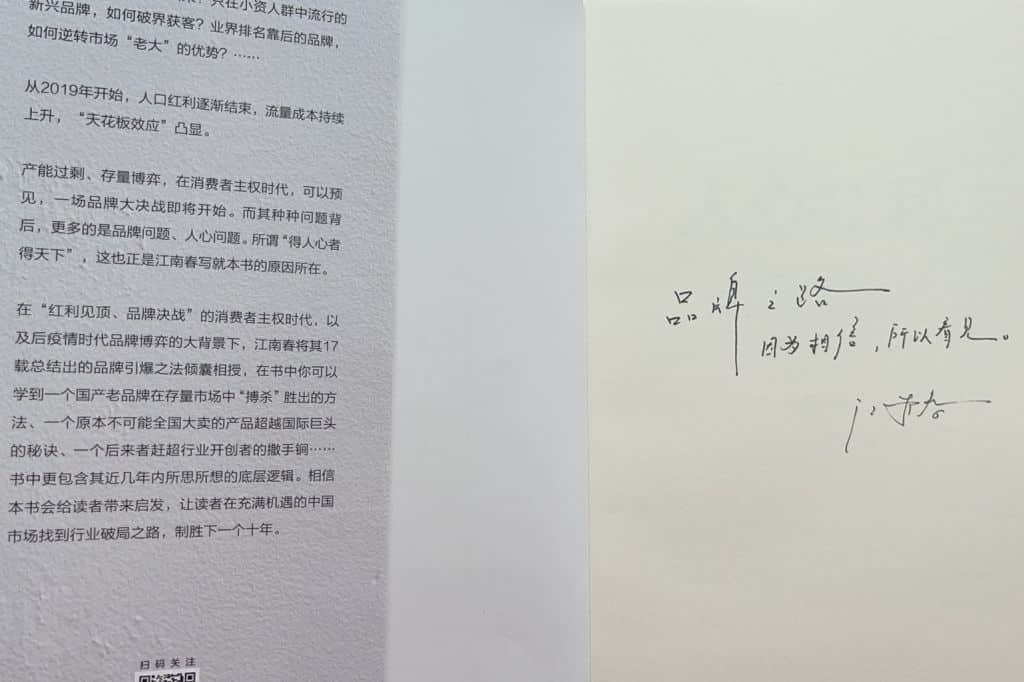 只在小资人群中流行的
新兴品牌，如何破界获客？业界排名靠后的品牌，
如何逆转市场“老大”的优势？……
从2019年开始，人口红利逐渐结束，流量成本持续
上升，“天花板效应”凸显。
产能过剩、存量博弈，在消费者主权时代，可以预
见，一场品牌大决战即将开始。而其种种问题背
后，更多的是品牌问题、人心问题。所谓“得人心者
得天下”，这也正是江南春写就本书的原因所在。
在“红利见顶、品牌决战”的消费者主权时代，以
及后疫情时代品牌博弈的大背景下，江南春将其17
载总结出的品牌引爆之法倾囊相授，在书中你可以
学到一个国产老品牌在存量市场中“搏杀”胜出的方
法、一个原本不可能全国大卖的产品超越国际巨头
的秘诀、一个后来者赶超行业开创者的撒手锏……
书中更包含其近几年内所思所想的底层逻辑。相信
本书会给读者带来启发，让读者在充满机遇的中国
市场找到行业破局之路，制胜下一个十年。
扫码关注
品牌之路
因为相信，所以看见。
江南春